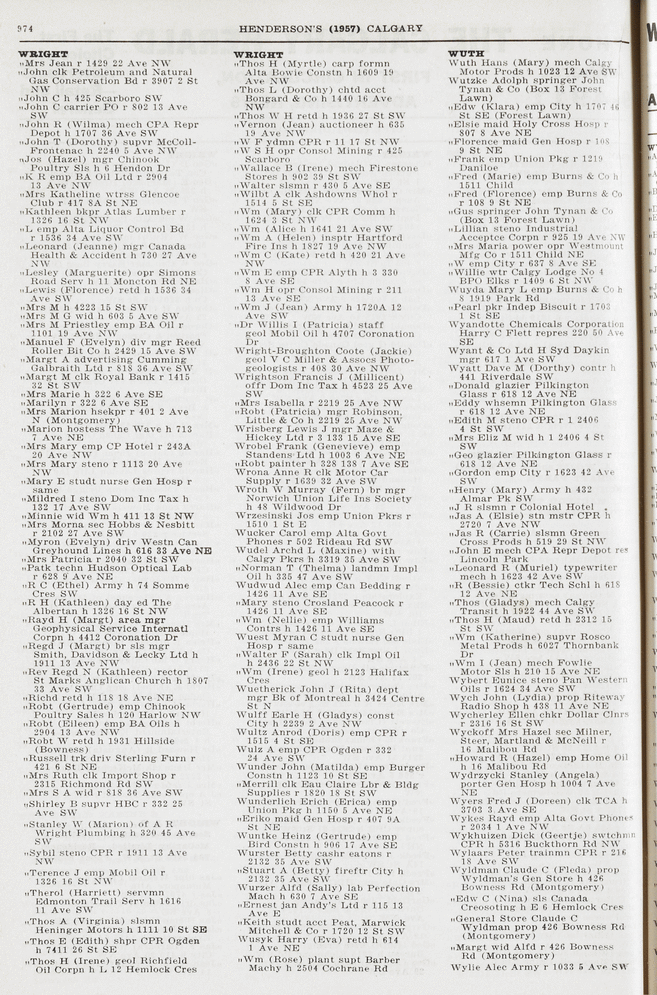 974
HENDERSON'S (1957) CALGARY
WRIGHT
"Mrs Jean r 1429 22 Ave NW
"John clk Petroleum and Natural
Gas Conservation Bd r 3907 2 St
NW
"John C h 425 Scarboro SW
"John C carrier PO r 802 13 Ave
SW
"John R (Wilma) mech CPA Repr
Depot h 1707 36 Ave SW
"John T (Dorothy) supvr McColl-
Frontenac h 2240 5 Ave NW
"Jos (Hazel) mgr Chinook
Poultry Sls h 6 Hendon Dr
"K R emp BA Oil Ltd r 2904
13 Ave NW
"Mrs Katheline wtrss Glencoe
Club r 417 8A St NE
"Kathleen bkpr Atlas Lumber r
1326 16 St NW
"L emp Alta Liquor Control Bd
r 1536 34 Ave SW
"Leonard (Jeanne) mgr Canada
Health & Accident h 730 27 Ave
NW
"Lesley (Marguerite) opr Simons
Road Serv h 11 Moncton Rd NE
"Lewis (Florence) retd h 1536 34
Ave SW
"Mrs M h 4223 15 St SW
"Mrs M G wid h 603 5 Ave SW
"Mrs M Priestley emp BA Oil r
1101 19 Ave NW
"Manuel F (Evelyn) div mgr Reed
Roller Bit Co h 2429 15 Ave SW
"Margt A advertising Cumming
Galbraith Ltd r 818 36 Ave SW
"Margt M clk Royal Bank r 1415
32 St SW
"Mrs Marie h 322 6 Ave SE
"Marilyn r 322 6 Ave SE
"Mrs Marion hsekpr r 401 2 Ave
N (Montgomery)
"Marion hostess The Wave h 713
7 Ave NE
"Mrs Mary emp CP Hotel r 243A
20 Ave NW
"Mrs Mary steno r 1113 20 Ave
NW
"Mary E studt nurse Gen Hosp r
same
"Mildred I steno Dom Inc Tax h
132 17 Ave SW
"Minnie wid Wm h 411 13 St NW
"Mrs Morna sec Hobbs & Nesbitt
r 2102 27 Ave SW
"Myron (Evelyn) driv Westn Can
Greyhound Lines h 616 33 Ave NE
"Mrs Patricia r 2040 32 St SW
"Patk techn Hudson Optical Lab
r 628 9 Ave NE
"R C (Ethel) Army h 74 Somme
Cres SW
"R H (Kathleen) day ed The
Albertan h 1326 16 St NW
"Rayd H (Margt) area mgr
Geophysical Service Internatl
Corpn h 4412 Coronation Dr
"Regd J (Margt) br sls mgr
Smith, Davidson & Lecky Ltd h
1911 13 Ave NW
"Rev Regd N (Kathleen) rector
St Marks Anglican Church h 1807
33 Ave SW
"Richd retd h 118 18 Ave NE
"Robt (Gertrude) emp Chinook
Poultry Sales h 120 Harlow NW
"Robt (Eileen) emp BA Oils h
2904 13 Ave NW
"Robt W retd h 1931 Hillside
(Bowness)
"Russell trk driv Sterling Furn r
421 6 St NE
"Mrs Ruth clk Import Shop r
2315 Richmond Rd SW
"Mrs S A wid r 818 36 Ave SW
"Shirley B supvr HBC r 332 25
Ave SW
"Stanley W (Marion) of A R
Wright Plumbing h 320 45 Ave
SW
"Sybil steno CPR r 1911 13 Ave
NW
"Terence J emp Mobil Oil r
1326 16 St NW
"Therol (Harriett) servmn
Edmonton Trail Serv h 1616
11 Ave SW
"Thos A (Virginia) slsmn
Heninger Motors h 1111 10 St SE
"Thos E (Edith) shpr CPR Ogden
h 7411 26 St SE
"Thos H (Irene) geol Richfield
Oil Corpn h L 12 Hemlock Cres
WRIGHT
"Thos H (Myrtle) carp formn
Alta Bowie Constn h 1609 19
Ave NW
"Thos L (Dorothy) chtd acct
Bongard & Co h 1440 16 Ave
NW
"Thos W H retd h 1936 27 St SW
"Vernon (Jean) auctioneer h 635
19 Ave NW
"W F ydmn CPR r 11 17 St NW
"W S H opr Consol Mining r 425
Scarboro
"Wallace B (Irene) mech Firestone
Stores h 902 39 St SW
"Walter slsmn r 430 5 Ave SE
"Wilbt A clk Ashdowns Whol r
1514 5 St SE
"Wm (Mary) clk CPR Comm h
1624 3 St NW
"Wm (Alice h 1641 21 Ave SW
"Wm A (Helen) insptr Hartford
Fire Ins h 1827 19 Ave NW
"Wm C (Kate) retd h 420 21 Ave
NW
"Wm E emp CPR Alyth h 3 330
8 Ave SE
"Wm H opr Consol Mining r 211
13 Ave SE
"Wm J (Jean) Army h 1720A 12
Ave SW
"Dr Willis I (Patricia) staff
geol Mobil Oil h 4707 Coronation
Dr
Wright-Broughton Coote (Jackie)
geol V C Miller & Assocs Photo-
geologists r 408 30 Ave NW
Wrightson Francis J (Millicent)
offr Dom Inc Tax h 4523 25 Ave
SW
"Mrs Isabella r 2219 25 Ave NW
"Robt (Patricia) mgr Robinson,
Little & Co h 2219 25 Ave NW
Wrisberg Lewis J mgr Maze &
Hickey Ltd r 3 133 15 Ave SE
Wrobel Frank (Genevieve) emp
Standens Ltd h 1003 6 Ave NE
"Robt painter h 328 138 7 Ave SE
Wrona Anne R clk Motor Car
Supply r 1639 32 Ave SW
Wroth W Murray (Fern) br mgr
Norwich Union Life Ins Society
h 48 Wildwood Dr
Wrzesinski Jos emp Union Pkrs r
1510 1 St E
Wucker Carol emp Alta Govt
Phones r 502 Rideau Rd SW
Wudel Archd L (Maxine) with
Calgy Pkrs h 3319 35 Ave SW
"Norman T (Thelma) landmn Impl
Oil h 335 47 Ave SW
Wudwud Alec emp Can Bedding r
1426 11 Ave SE
"Mary steno Crosland Peacock r
1426 11 Ave SE
"Wm (Nellie) emp Williams
Contrs h 1426 11 Ave SE
Wuest Myran C studt nurse Gen
Hosp r same
"Walter F (Sarah) clk Impl Oil
h 2436 22 St NW
"Wm (Irene) geol h 2123 Halifax
Cres
Wuetherick John J (Rita) dept
mgr Bk of Montreal h 3424 Centre
St N
Wulff Earle H (Gladys) const
City h 2239 2 Ave NW
Wultz Anrod (Doris) emp CPR r
1515 4 St SE
Wulz A emp CPR Ogden r 332
24 Ave SW
Wunder John (Matilda) emp Burger
Constn h 1123 10 St SE
"Merrill clk Eau Claire Lbr & Bldg
Supplies r 1820 18 St SW
Wunderlich Erich (Erica) emp
Union Pkg h 1150 5 Ave NE
"Eriko maid Gen Hosp r 407 9A
St NE
Wuntke Heinz (Gertrude) emp
Bird Constn h 906 17 Ave SE
Wurster Betty cashr eatons r
2132 35 Ave SW
"Stuart A (Betty) fireftr City h
2132 35 Ave SW
Wurzer Alfd (Sally) lab Perfection
Mach h 630 7 Ave SE
"Ernest jan Andy's Ltd r 115 13
Ave E
"Keith studt acct Peat, Marwick
Mitchell & Co r 1720 12 St SW
Wusyk Harry (Eva) retd h 614
1 Ave NE
"Wm (Rose) plant supt Barber
Machy h 2504 Cochrane Rd
WUTH
Wuth Hans (Mary) mech Calgy
Motor Prods h 1023 12 Ave SW
Wutzke Adolph springer John
Tynan & Co (Box 13 Forest
Lawn)
"Edw (Klara) emp City h 1707 46
St SE (Forest Lawn)
"Elsie maid Holy Cross Hosp r
807 8 Ave NE
"Florence maid Gen Hosp r 108
9 St NE
"Frank emp Union Pkg r 1219
Daniloe
"Fred (Marie) emp Burns & Co h
1511 Child
"Fred (Florence) emp Burns & Co
r 108 9 St NE
"Gus springer John Tynan & Co
(Box 13 Forest Lawn)
"Lillian steno Industrial
Acceptce Corpn r 925 19 Ave NW
"Mrs Maria power opr Westmount
Mfg Co r 1511 Child NE
"W emp City r 637 8 Ave SE
"Willie wtr Calgy Lodge No 4
BPO Elks r 1409 6 St NW
Wuyda Mary L emp Burns & Co h
8 1919 Park Rd
"Pearl pkr Indep Biscuit r 1703
1 St SE
Wyandotte Chemicals Corporation
Harry C Flett repres 220 50 Ave
SE
Wyant & Co Ltd H Syd Daykin
mgr 617 1 Ave SW
Wyatt Dave M (Dorthy) contr h
441 Riverdale SW
"Donald glazier Pilkington
Glass r 618 12 Ave NE
"Eddy whsemn Pilkington Glass
r 618 12 Ave NE
"Edith M steno CPR r 1 2406
4 St SW
"Mrs Eliz M wid h 1 2406 4 St
SW
"Geo glazier Pilkington Glass r
618 12 Ave NE
"Gordon emp City r 1623 42 Ave
SW
"Henry (Mary) Army h 432
Almar Pk SW
"J R slsmn r Colonial Hotel
"Jas A (Elsie) stn mstr CPR h
2720 7 Ave NW
"Jas R (Carrie) slsmn Green
Cross Prods h 519 29 St NW
"John E mech CPA Repr Depot res
Lincoln Park
"Leonard R (Muriel) typewriter
mech h 1623 42 Ave SW
"R (Bessie) ctkr Tech Schl h 618
12 Ave NE
"Thos (Gladys) mech Calgy
Transit h 1922 44 Ave SW
"Thos H (Maud) retd h 2312 15
St SW
"Wm (Katherine) supvr Rosco
Metal Prods h 6027 Thornbank
Dr
"Wm I (Jean) mech Fowlie
Motor Sls h 210 15 Ave NE
Wybert Eunice steno Pan Western
Oils r 1624 34 Ave SW
Wych John (Lydia) prop Riteway
Radio Shop h 438 11 Ave NE
Wycherley Ellen chkr Dollar Clnrs
r 2316 16 St SW
Wyckoff Mrs Hazel sec Milner,
Steer, Martland & McNeill r
16 Malibou Rd
"Howard R (Hazel) emp Home Oil
h 16 Malibou Rd
Wydrzycki Stanley (Angela)
porter Gen Hosp h 1004 7 Ave
NE
Wyers Fred J (Doreen) clk TCA h
3703 3 Ave SE
Wykes Rayd emp Alta Govt Phones
r 2034 1 Ave NW
Wykhuizen Dick (Geertje) swtchmn
CPR h 5316 Buckthorn Rd NW
Wylaars Peter trainmn CPR r 216
18 Ave SW
Wyldman Claude C (Fleda) prop
Wyldman's Gen Store h 426
Bowness Rd (Montgomery)
"Edw C (Nina) sls Canada
Creosoting h E 6 Hemlock Cres
"General Store Claude C
Wyldman prop 426 Bowness Rd
(Montgomery)
"Margt wid Alfd r 426 Bowness
Rd (Montgomery)
Wylie Alec Army r 1033 5 Ave SW